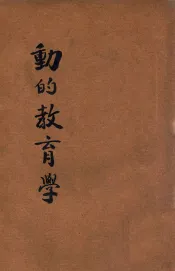 動的教育學